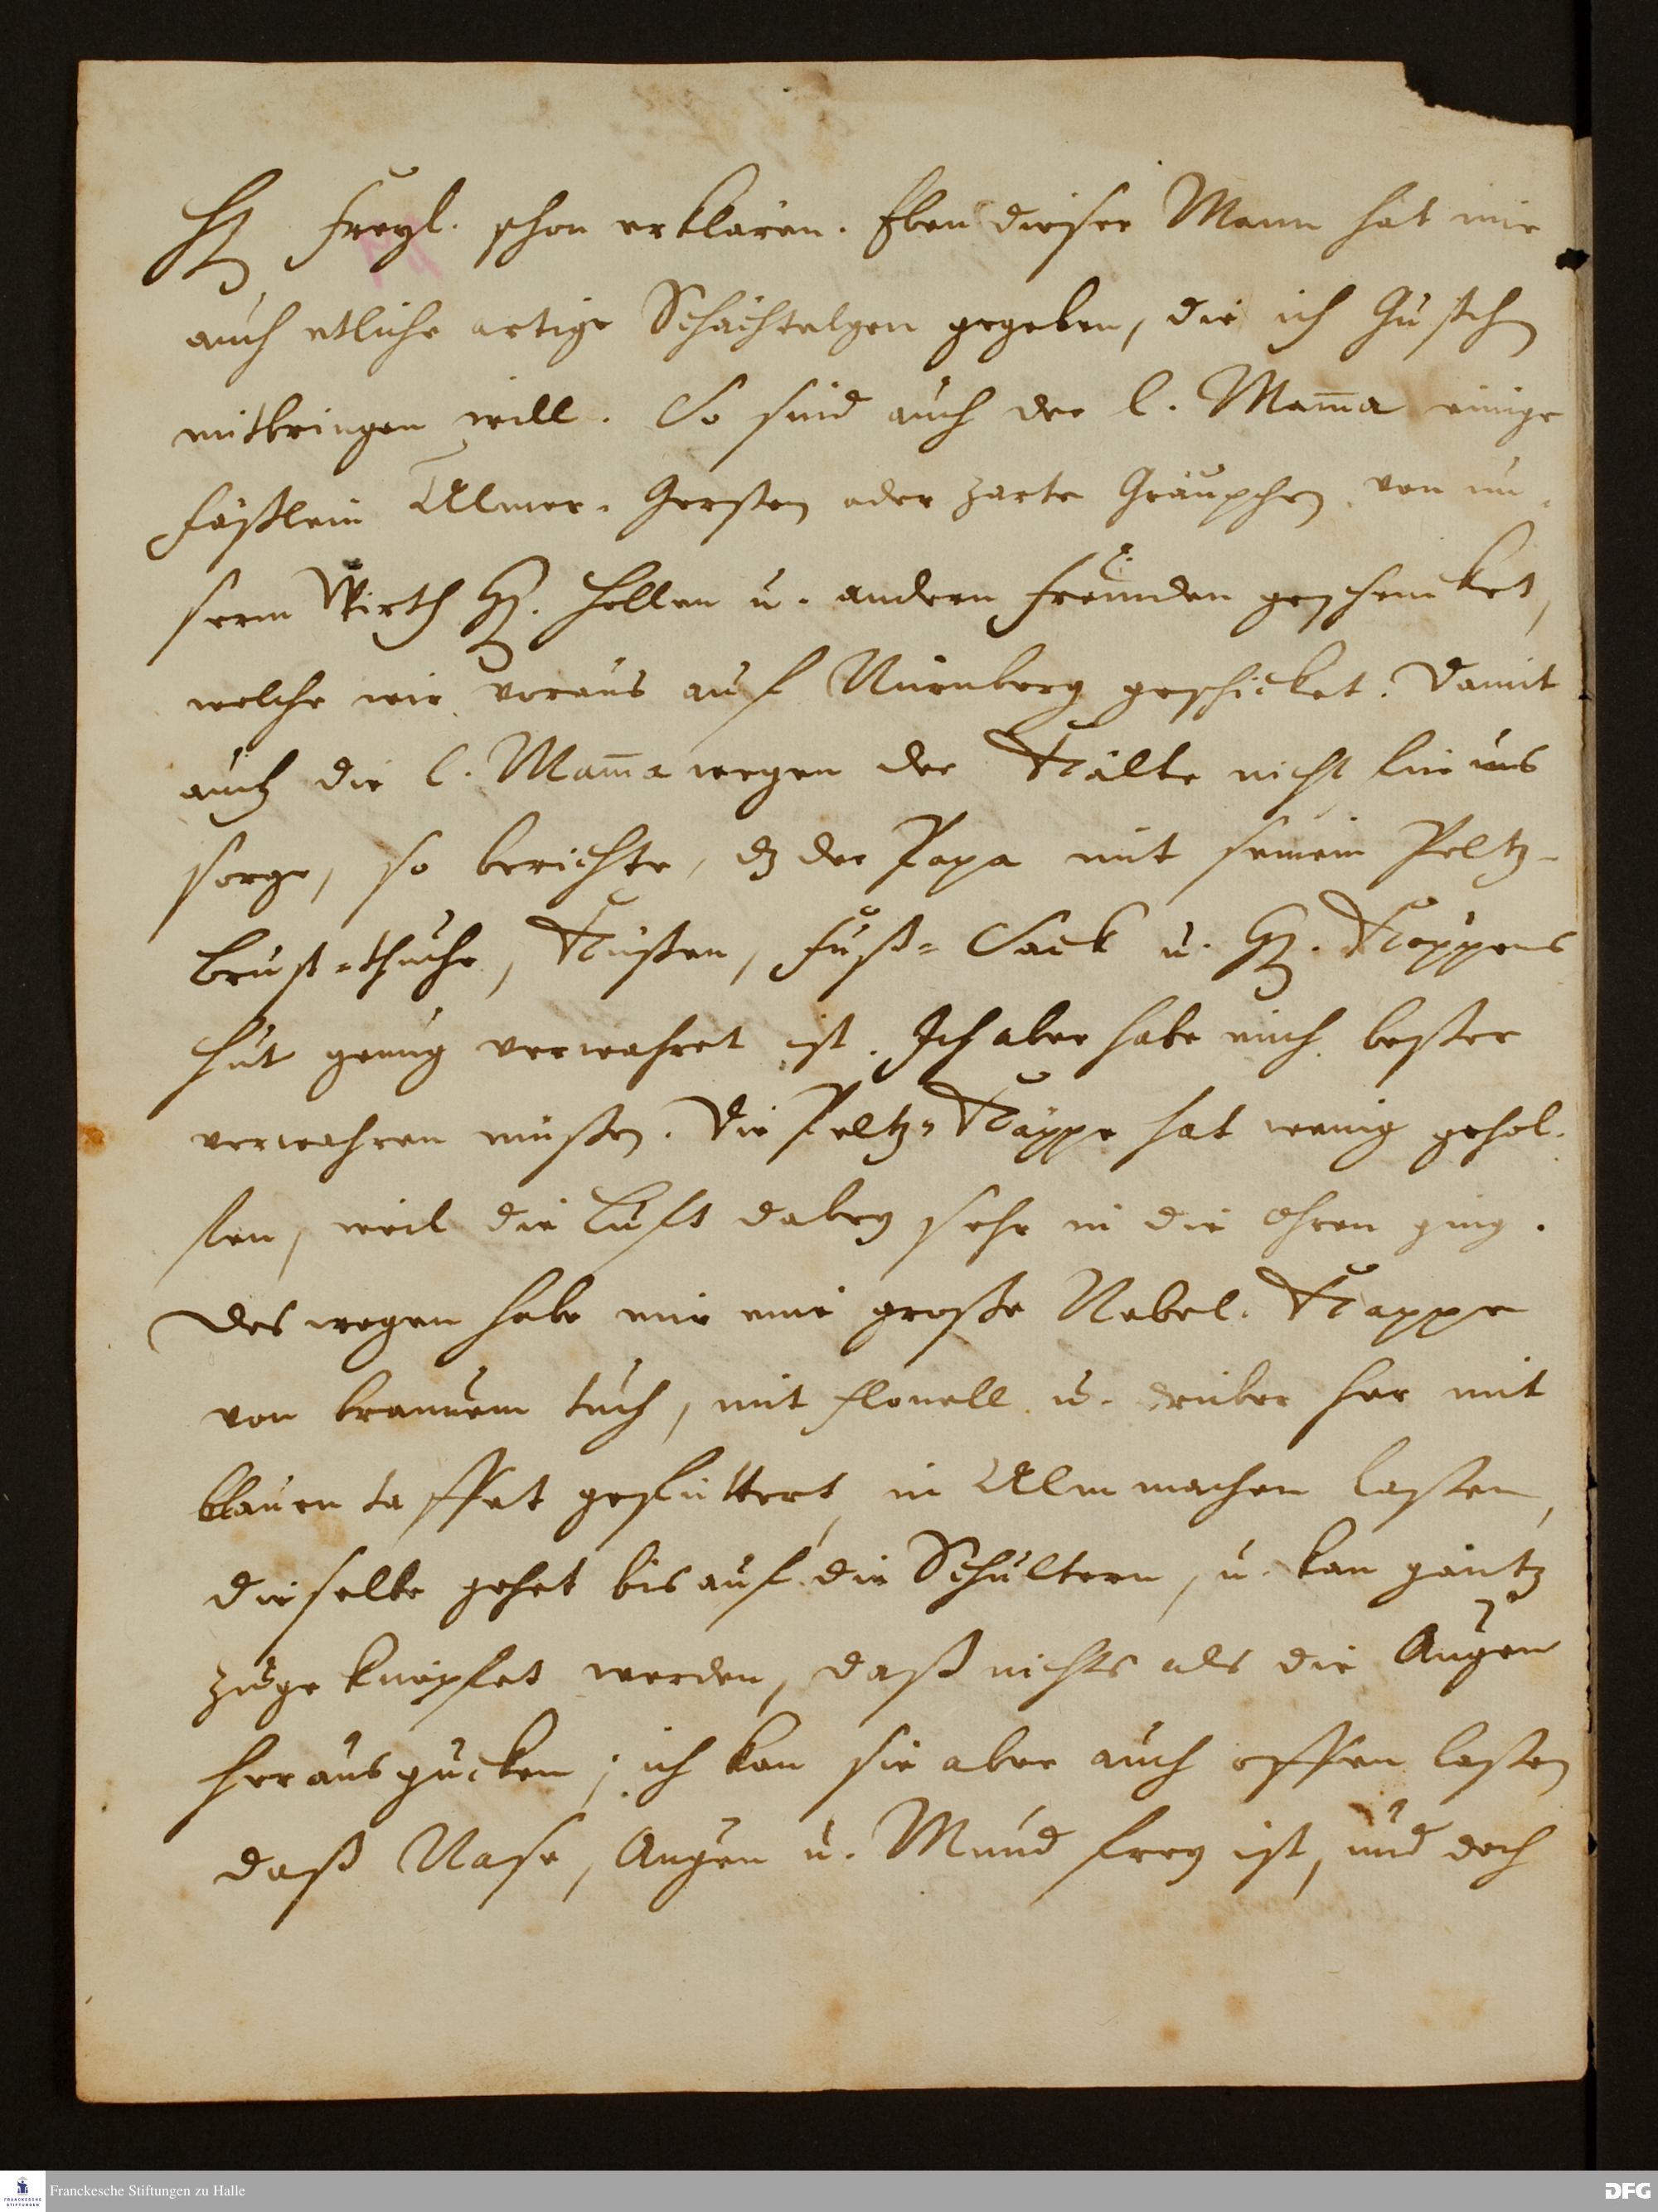 H. Freyl. schon erklären. Eben dieser Mann hat mir
auch etliche artige Schächtelgen gegeben, die ich
mitbringen will. So sind auch der l. Mama̅ einige
Fäßlein Ulmer-Gersten oder zarte Gräupchen von un-
serm Wirth H. Hellen u. andern Freunden geschencket,
welche wir voraus auf Nürnberg geschicket. Damit
auch die l. Mama̅ wegen der Kälte nicht für uns
sorge, so berichte, dz der Papa mit seinem Peltz-
Brust-thuche, Küßen, Fuß-Sack u. H. Köppens
Hut genug verwahret ist. Ich aber habe mich beßer
verwahren müßen. Die Peltz-Kappe hat wenig gehol-
fen, weil die Lufft dabey sehr in die Ohren ging.
Deswegen habe mir eine große Nebel-Kappe
von braunem tuch, mit flonell u. drüber her mit
blauen taffet gefüttert, in Ulm machen laßen,
dieselbe gehet bis auf die Schultern, u. kan gantz
zugeknöpfet werden, daß nichts als die Augen
herausgucken; ich kan sie aber auch offen laßen
daß Nase, Augen u. Mund frey ist, und doch
Franckesche Stiftungen zu Halle
DFG